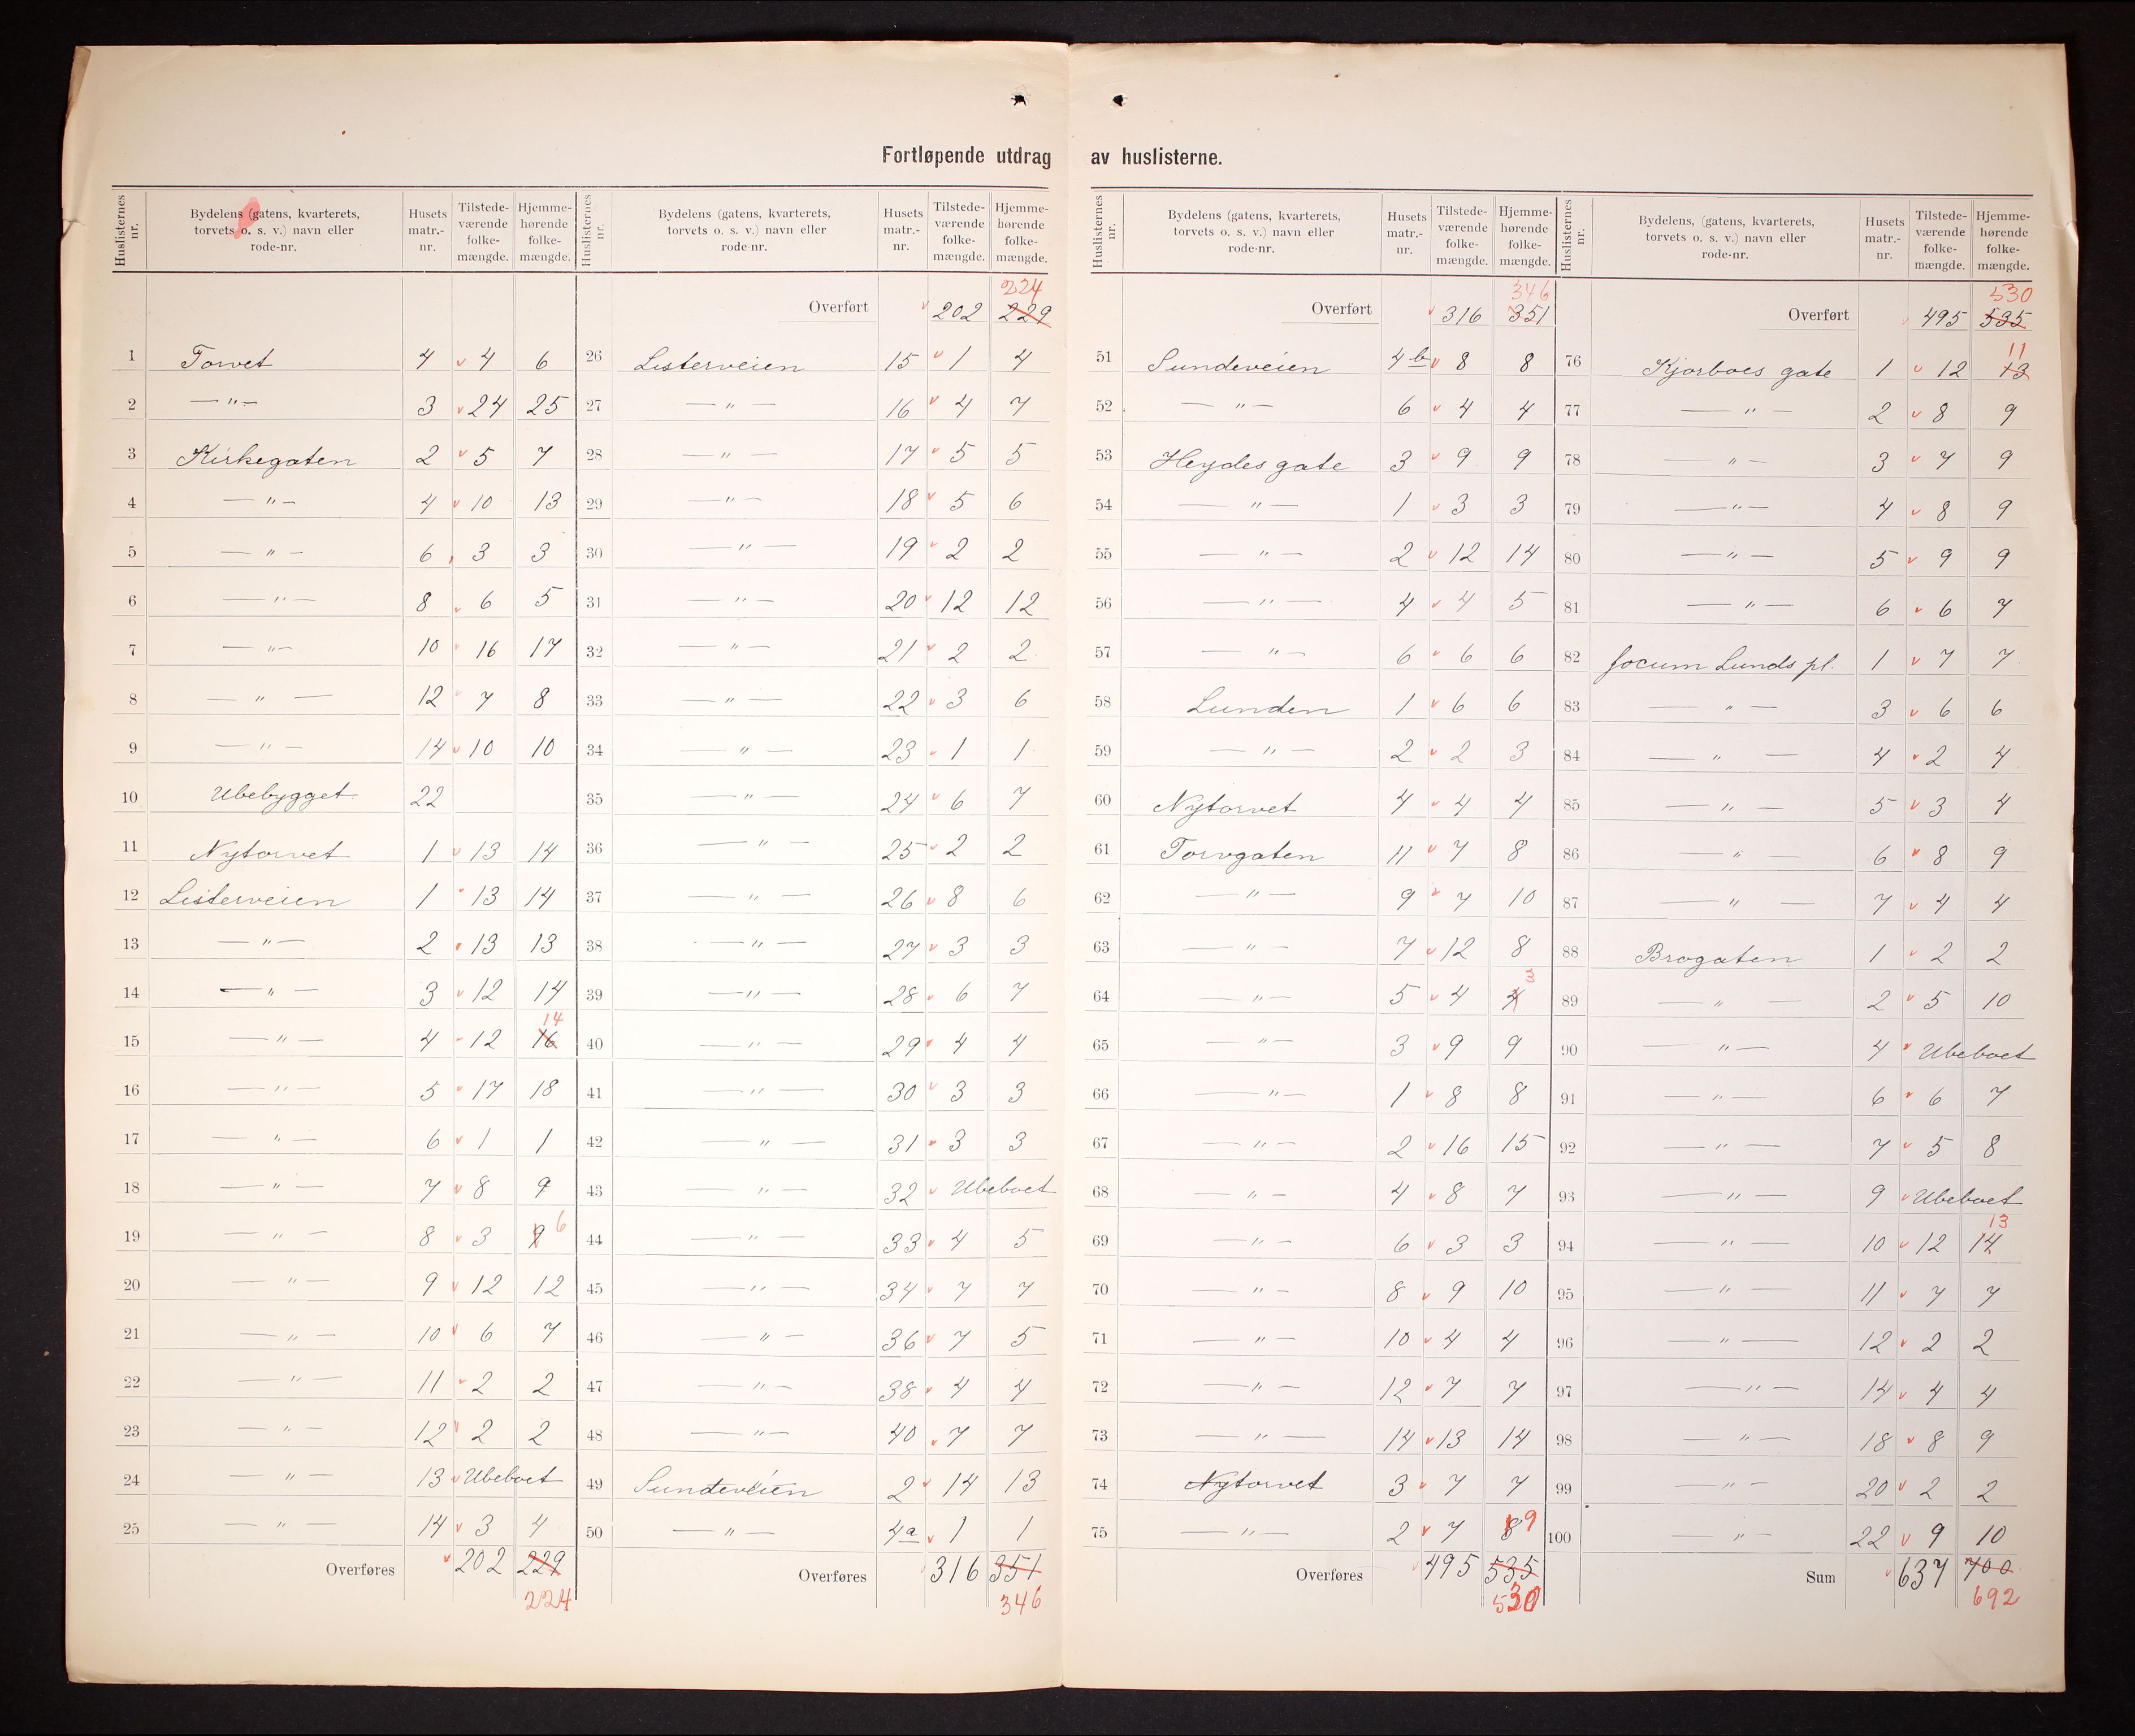 Fortløpende utdrag av huslisterne.
Huslisternes nr. | Bydelens (gatens, kvarterets, torvets o. s. v.) navn eller rode-nr. | Husets matr.-nr. | Tilstede-værende folke-mængde. | Hjemme-hørende folke-mængde.
1 Torvet 4 v 4 6
2 —"— 3 v 24 25
3 Kirkegaten 2 v 5 7
4 —"— 4 v 10 13
5 —"— 6 3 3
6 —"— 8 v 6 5
7 —"— 10 16 17
8 —"— 12 7 8
9 —"— 14 v 10 10
10 Ubebygget 22
11 Nytorvet 1 v 13 14
12 Listerveien 1 13 14
13 —"— 2 13 13
14 —"— 3 v 12 14
15 —"— 4 12 16 14
16 —"— 5 v 17 18
17 —"— 6 v 1 1
18 —"— 7 v 8 9
19 —"— 8 v 3 9 6
20 —"— 9 v 12 12
21 —"— 10 v 6 7
22 —"— 11 v 2 2
23 —"— 12 v 2 2
24 —"— 13 v Ubeboet
25 —"— 14 v 3 4
Overføres v 202 229
224
Huslisternes nr. | Bydelens (gatens, kvarterets, torvets o. s. v.) navn eller rode-nr. | Husets matr.-nr. | Tilstede-værende folke-mængde. | Hjemme-hørende folke-mængde.
224
Overført v 202 229
26 Listerveien 15 v 1 4
27 —"— 16 v 4 7
28 —"— 17 v 5 5
29 —"— 18 v 5 6
30 —"— 19 v 2 2
31 —"— 20 v 12 12
32 —"— 21 v 2 2
33 —"— 22 v 3 6
34 —"— 23 v 1 1
35 —"— 24 v 6 7
36 —"— 25 v 2 2
37 —"— 26 v 8 6
38 —"— 27 v 3 3
39 —"— 28 v 6 7
40 —"— 29 v 4 4
41 —"— 30 v 3 3
42 —"— 31 v 3 3
43 —"— 32 v Ubeboet
44 —"— 33 v 4 5
45 —"— 34 v 7 7
46 —"— 36 v 7 5
47 —"— 38 v 4 4
48 —"— 40 v 7 7
49 Sundeveien 2 v 14 13
50 —"— 4a v 1 1
Overføres 316 351
346
Huslisternes nr. | Bydelens (gatens, kvarterets, torvets o. s. v.) navn eller rode-nr. | Husets matr.-nr. | Tilstede-værende folke-mængde. | Hjemme-hørende folke-mængde.
346
Overført v 316 351
51 Sundeveien 4b v 8 8
52 —"— 6 v 4 4
53 Heydes gate 3 v 9 9
54 —"— 1 v 3 3
55 —"— 2 v 12 14
56 —"— 4 v 4 5
57 —"— 6 v 6 6
58 Lunden 1 v 6 6
59 —"— 2 v 2 3
60 Nytorvet 4 v 4 4
61 Torvgaten 11 v 7 8
62 —"— 9 v 7 10
63 —"— 7 v 12 8
64 —"— 5 v 4 4 3
65 —"— 3 v 9 9
66 —"— 1 v 8 8
67 —"— 2 v 16 15
68 —"— 4 v 8 7
69 —"— 6 v 3 3
70 —"— 8 v 9 10
71 —"— 10 v 4 4
72 —"— 12 v 7 7
73 —"— 14 v 13 14
74 Nytorvet 3 v 7 7
75 —"— 2 v 7 8 9
Overføres v 495 535
530
Huslisternes nr. | Bydelens, (gatens, kvarterets, torvets o. s. v.) navn eller rode-nr. | Husets matr.-nr. | Tilstede-værende folke-mængde. | Hjemme-hørende folke-mængde.
530
Overført v 495 535
76 Kjørboes gate 1 v 12 13 11
77 —"— 2 v 8 9
78 —"— 3 v 7 9
79 —"— 4 v 8 9
80 —"— 5 v 9 9
81 —"— 6 v 6 7
82 Jocum Lunds pl. 1 v 7 7
83 —"— 3 v 6 6
84 —"— 4 v 2 4
85 —"— 5 v 3 4
86 —"— 6 v 8 9
87 —"— 7 v 4 4
88 Brogaten 1 v 2 2
89 —"— 2 v 5 10
90 —"— 4 v Ubeboet
91 —"— 6 v 6 7
92 —"— 7 v 5 8
93 —"— 9 v Ubeboet
94 —"— 10 v 12 14 13
95 —"— 11 v 7 7
96 —"— 12 v 2 2
97 —"— 14 v 4 4
98 —"— 18 v 8 9
99 —"— 20 v 2 2
100 —"— 22 v 9 10
Sum v 637 700
692